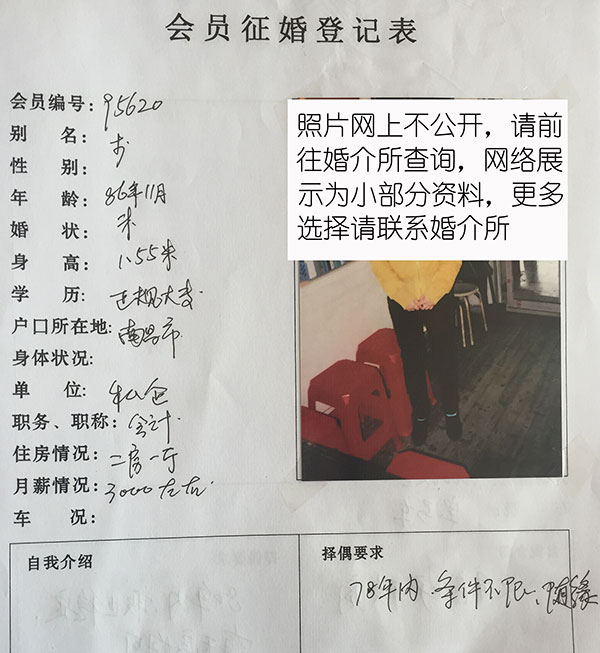 会员征婚登记表
会员编号: 95620
别 名:
性 别: 女
年 龄: 86年11月
婚 状: 未
身 高: 1.55米
学 历: 正规大专
户口所在地: 南昌市
身体状况:
单 位: 私企
职务、职称: 会计
住房情况: 二房一厅
月薪情况: 3000左右
车 况:
照片网上不公开，请前
往婚介所查询，网络展
示为小部分资料，更多
选择请联系婚介所
自我介绍
择偶要求
78年内.条件不限.随缘